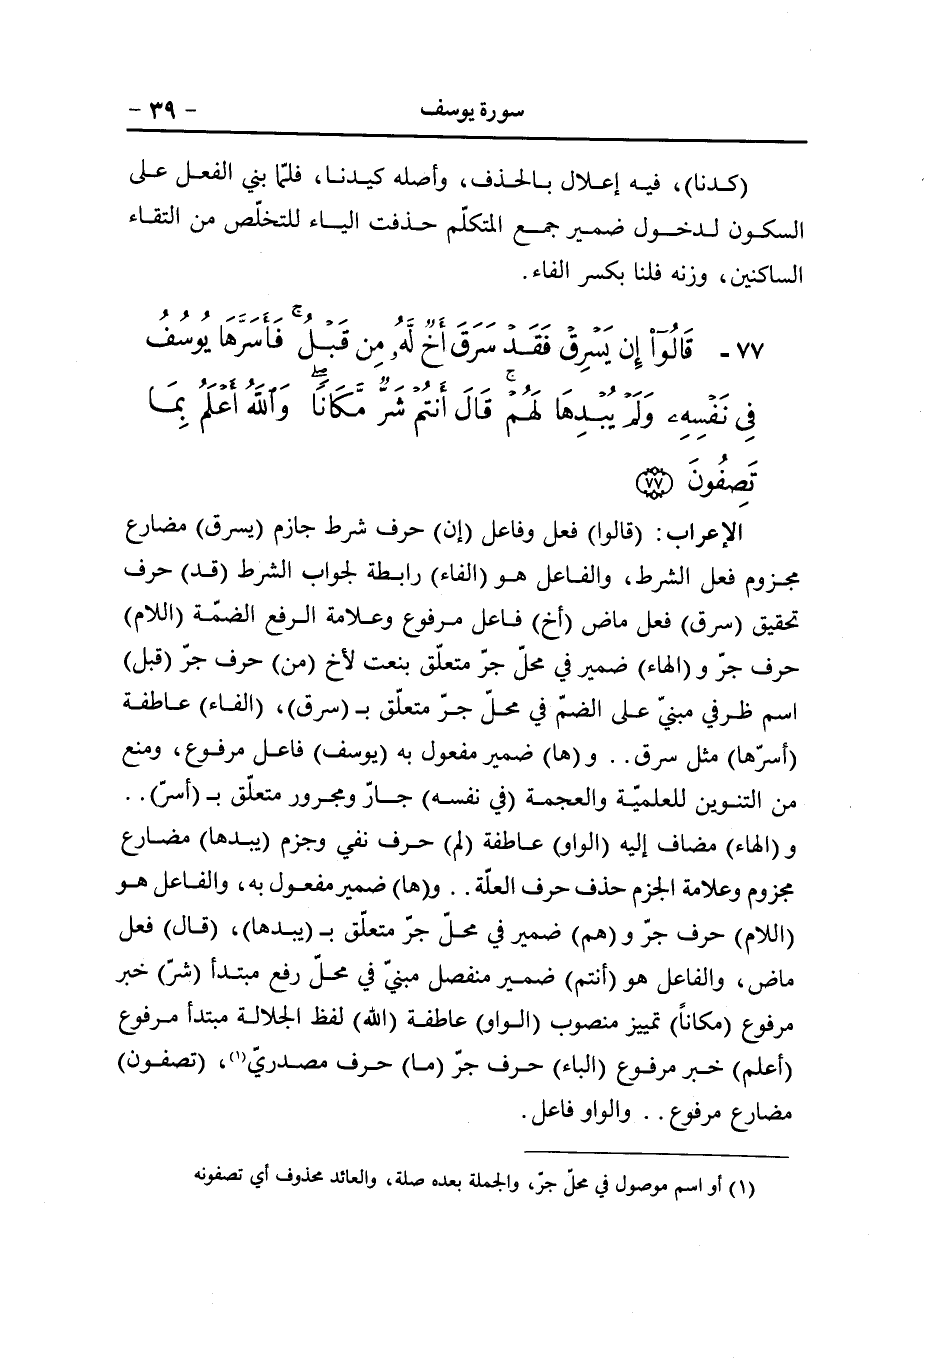 سورة يوسف - ٣٩ -
(كدنا)، فيه إعلال بالحذف، وأصله كيدنا، فلمّا بني الفعل على
السكون لدخول ضمير جمع المتكلّم حذفت الياء للتخلّص من التقاء
الساكنين، وزنه فلنا بكسر الفاء.
٧٧ - قَالُوٓا۟ إِن يَسْرِقْ فَقَدْ سَرَقَ أَخٌ لَّهُۥ مِن قَبْلُ ۚ فَأَسَرَّهَا يُوسُفُ
فِى نَفْسِهِۦ وَلَمْ يُبْدِهَا لَهُمْ ۚ قَالَ أَنتُمْ شَرٌّ مَّكَانًا ۖ وَٱللَّهُ أَعْلَمُ بِمَا
تَصِفُونَ ﴿٧٧﴾
الإعراب: (قالوا) فعل وفاعل (إن) حرف شرط جازم (يسرق) مضارع
مجزوم فعل الشرط، والفاعل هو (الفاء) رابطة لجواب الشرط (قد) حرف
تحقيق (سرق) فعل ماض (أخ) فاعل مرفوع وعلامة الرفع الضمّة (اللام)
حرف جرّ و (الهاء) ضمير في محلّ جرّ متعلّق بنعت لأخ (من) حرف جرّ (قبل)
اسم ظرفي مبنيّ على الضمّ في محلّ جرّ متعلّق بـ (سرق)، (الفاء) عاطفة
(أسرّها) مثل سرق.. و (ها) ضمير مفعول به (يوسف) فاعل مرفوع، ومنع
من التنوين للعلميّة والعجمة (في نفسه) جارّ ومجرور متعلّق بـ (أسرّ)..
و (الهاء) مضاف إليه (الواو) عاطفة (لم) حرف نفي وجزم (يبدها) مضارع
مجزوم وعلامة الجزم حذف حرف العلّة.. و(ها) ضمير مفعول به، والفاعل هو
(اللام) حرف جرّ و (هم) ضمير في محلّ جرّ متعلّق بـ (يبدها)، (قال) فعل
ماض، والفاعل هو (أنتم) ضمير منفصل مبنيّ في محلّ رفع مبتدأ (شرّ) خبر
مرفوع (مكاناً) تمييز منصوب (الواو) عاطفة (الله) لفظ الجلالة مبتدأ مرفوع
(أعلم) خبر مرفوع (الباء) حرف جرّ (ما) حرف مصدريّ(١)، (تصفون)
مضارع مرفوع.. والواو فاعل.
(١) أو اسم موصول في محلّ جرّ، والجملة بعده صلة، والعائد محذوف أي تصفونه